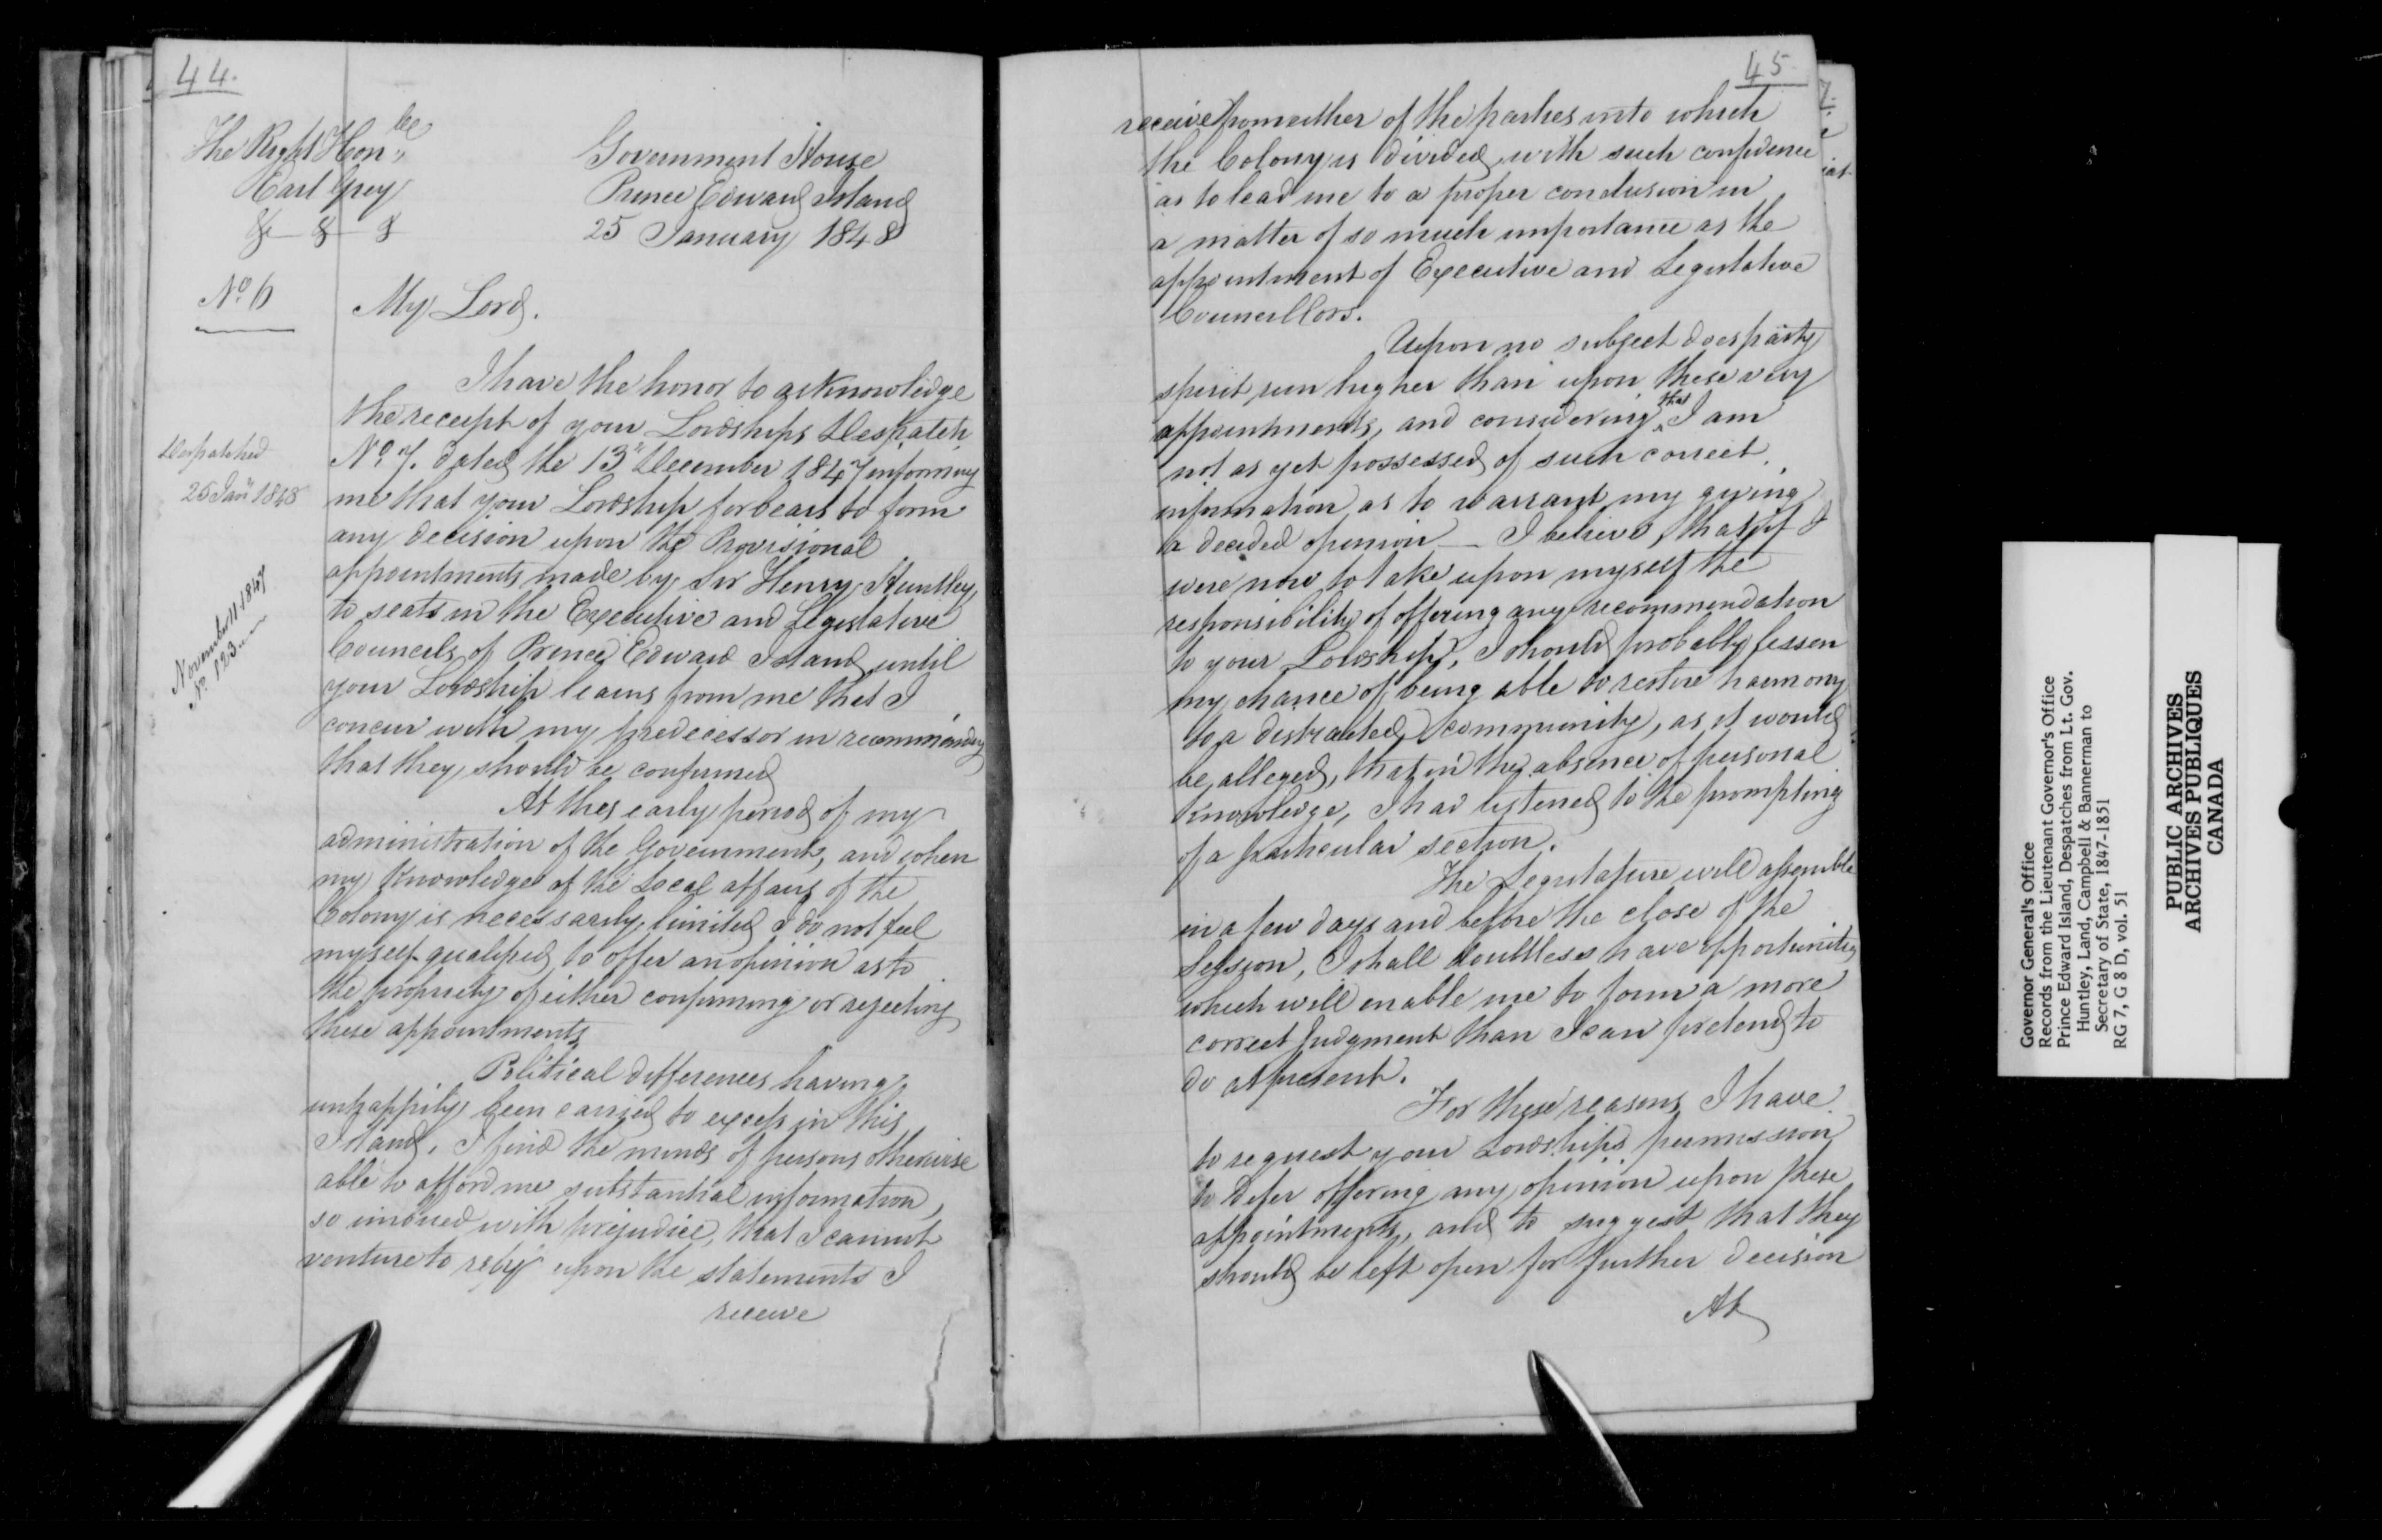 44.
The Right Honble
Earl Grey
& & &
No 6
Government House
Prince Edward Island
25 January 1848
My Lord.
I have the honor to acknowledge
the receipt of your Lordships Despatch
No 7. dated the 13" December 1847 informing
me that your Lordship forbears to form
any decision upon the Provisional
appointments made by Sir Henry Huntley,
to seats in the Executive and Legislative
Councils of Prince Edward Island until
your Lordship learns from me that I
concur with my predecessor in recommending
that they should be confirmed
Despatched
25 Jany 1848
November 11 1847
No 123
At this early period of my
administration of the Government, and when
my Knowledge of the Local affairs of the
Colony is necessarily limited I do not feel
myself qualified to offer an opinion as to
the propriety of either confirming or rejecting
these appointments
Political differences having
unhappily been carried to excess in this
Island, I find the minds of persons otherwise
able to afford me substantial information,
so imbued with prejudice, that I cannot
venture to rely upon the statements I
receive
45
receive from either of the parties into which
the Colony is divided, with such confidence
as to lead me to a proper conclusion in
a matter of so much importance as the
appointment of Executive and Legislative
Councillors.
Upon no subject does party
spirit run higher than upon these very
appointments, and considering that I am
not as yet possessed of such correct
information as to warrant my giving
a decided opinion — I believe, that if I
were now to take upon myself the
responsibility of offering any recommendation
to your Lordship, I should probably lessen
my chance of being able to restore harmony
to a distracted community, as it would
be alleged, that in the absence of personal
Knowledge, I had listened to the prompting
of a particular section.
The Legislature will assemble
in a few days and before the close of the
Session, I shall doubtless have opportunities
which will enable me to form a more
correct Judgment than I can pretend to
do at present.
For these reasons I have
to request your Lordships permission
to defer offering any opinion upon these
appointments, and to suggest that they
should be left open for further decision
At
Governor General's Office
Records from the Lieutenant Governor's Office
Prince Edward Island, Despatches from Lt. Gov.
Huntley, Land, Campbell & Bannerman to
Secretary of State, 1847-1851
RG 7, G 8 D, vol. 51
PUBLIC ARCHIVES
ARCHIVES PUBLIQUES
CANADA